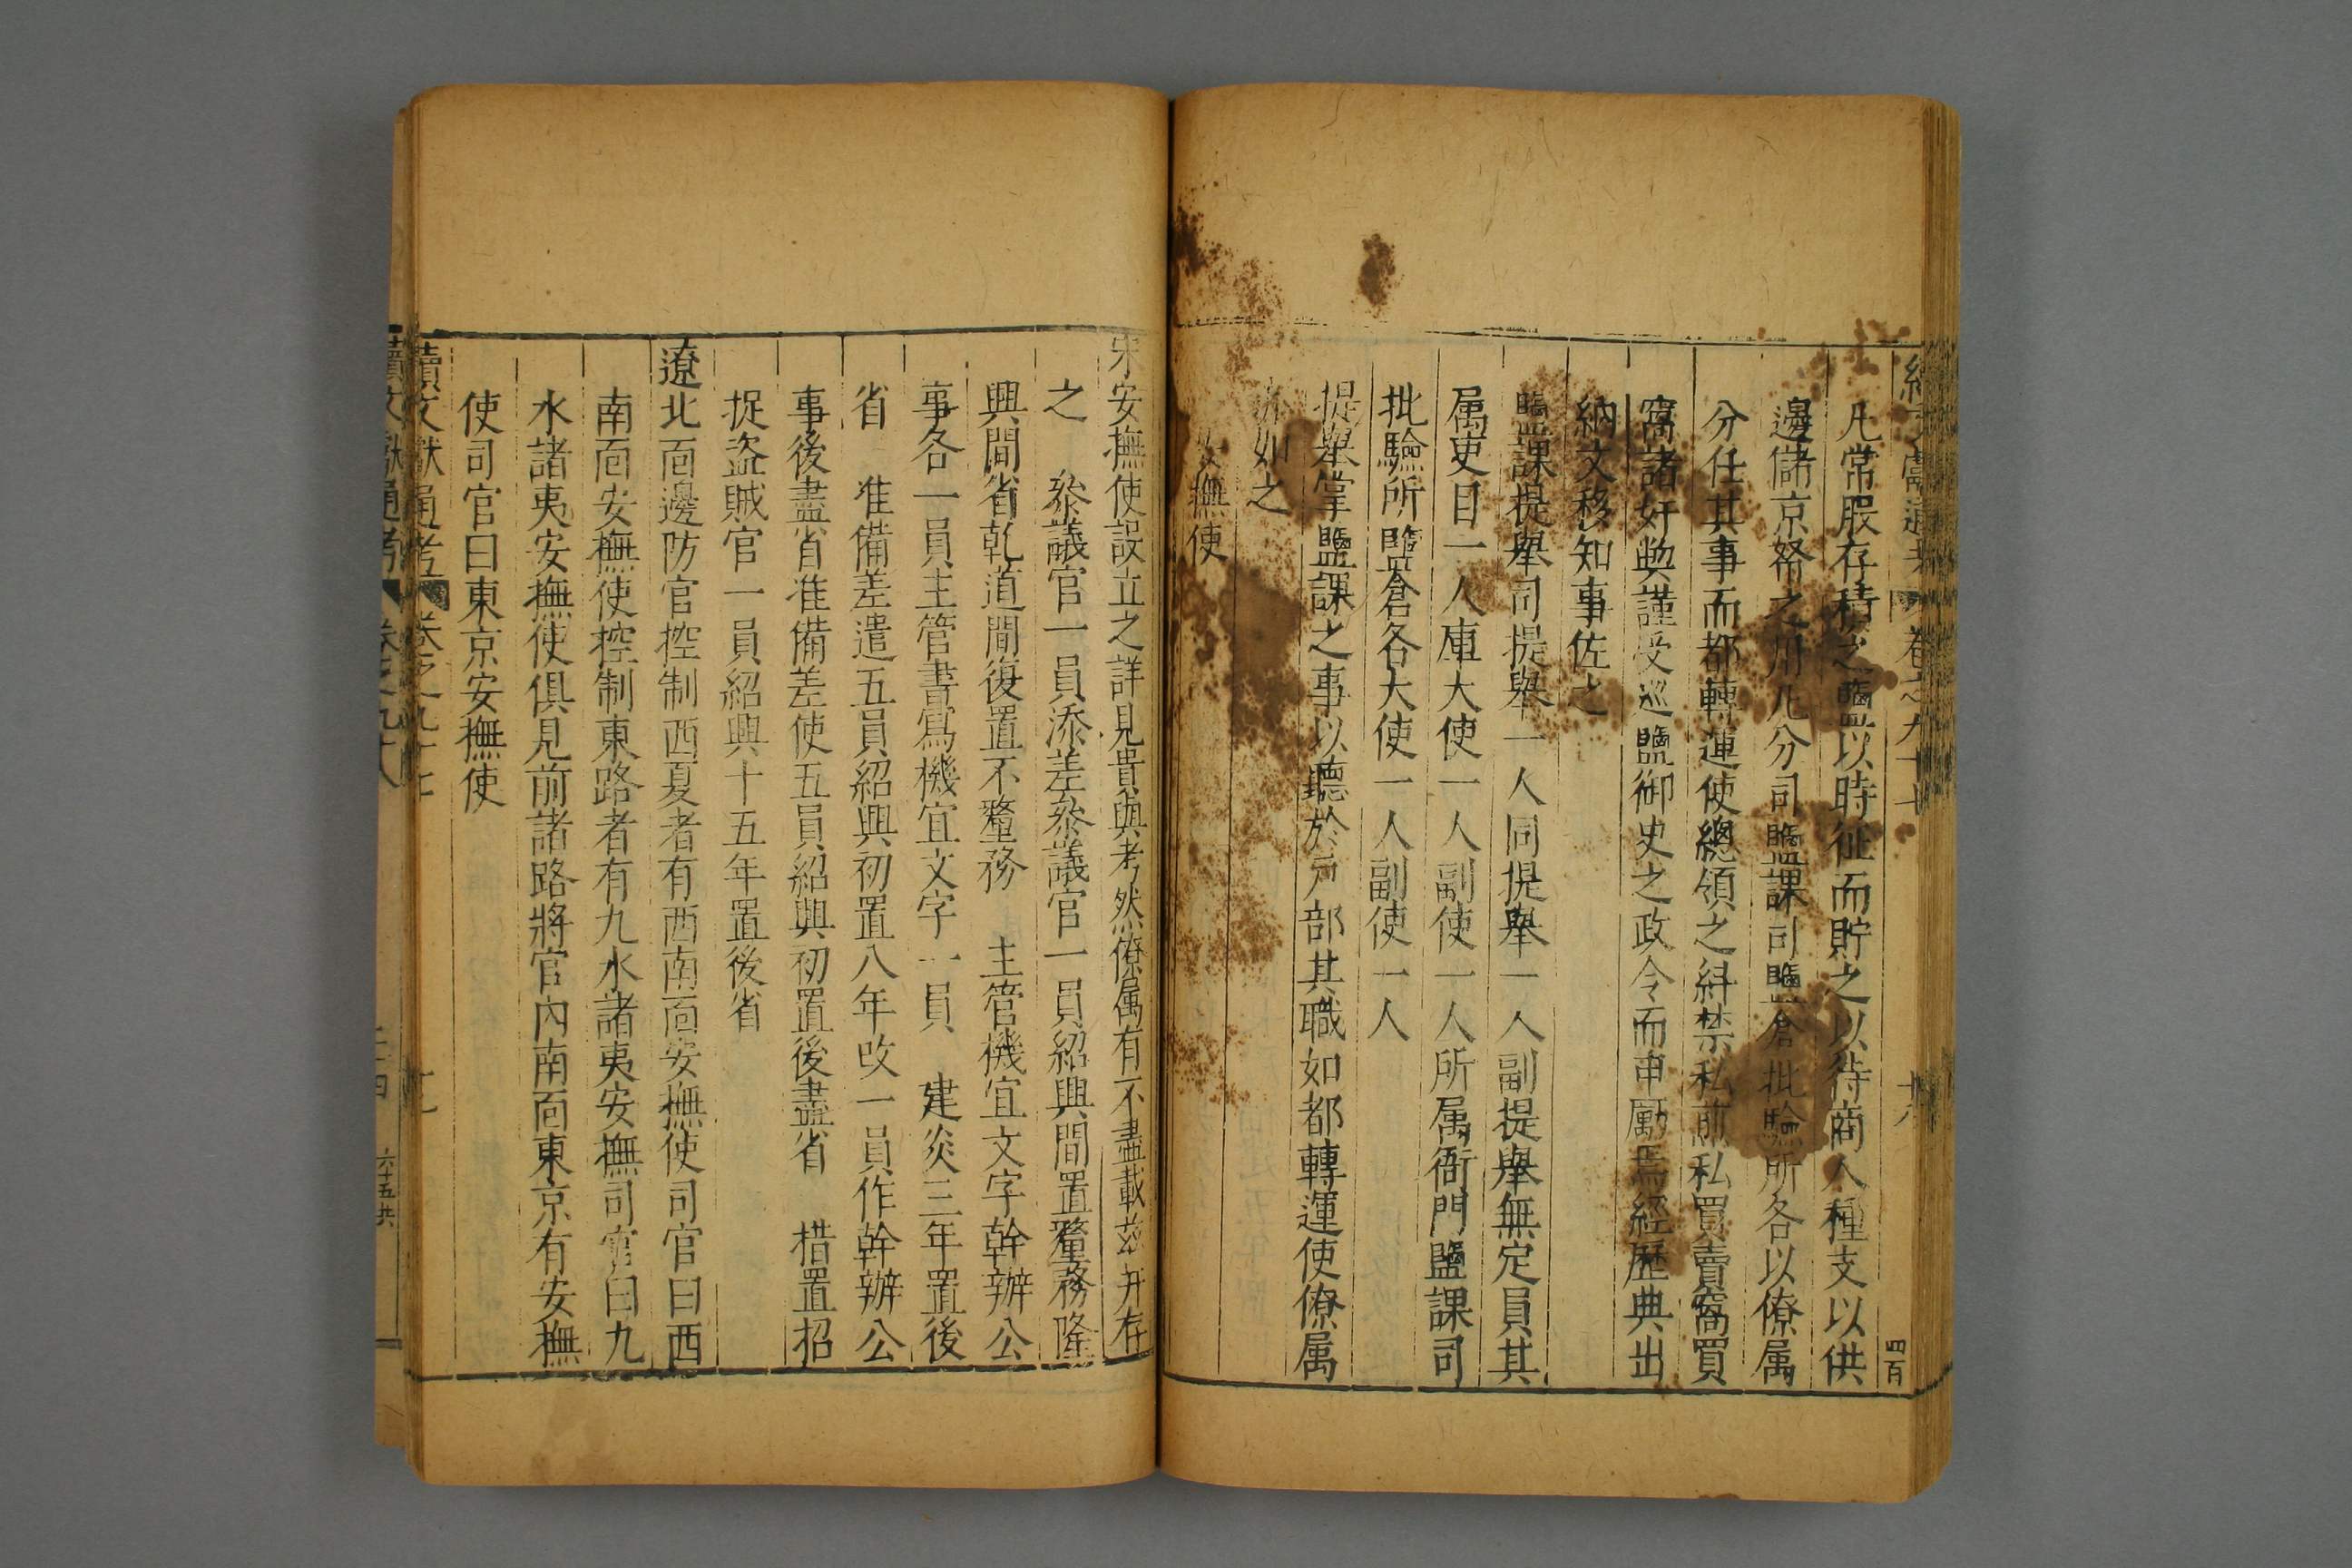 續文獻通考 卷之九十七 十八 四百
凡常股存積之鹽以時征而貯之以待商人種支以供
邊儲京帑之用凡分司鹽課司鹽倉批驗所各以僚属
分任其事而都轉運使總領之糾禁私煎私買賣窩買
窩諸奸弊謹受巡鹽御史之政令而申厲焉經歷典出
納文移知事佐之
鹽課提舉司提舉一人同提舉一人副提舉無定員其
属吏目一人庫大使一人副使一人所属衙門鹽課司
批驗所鹽倉各大使一人副使一人
提舉掌鹽課之事以聽於戶部其職如都轉運使僚属
亦如之
安撫使
宋安撫使設立之詳見貴與考然僚属有不盡載兹并存
之 叅議官一員添差叅議官一員紹興間置釐務隆
興間省乾道間復置不釐務 主管機宜文字幹辦公
事各一員主管書寫機宜文字一員 建炎三年置後
省 准備差遣五員紹興初置八年改一員作幹辦公
事後盡省准備差使五員紹興初置後盡省 措置招
捉盗賊官一員紹興十五年置後省
遼北面邊防官控制西夏者有西南面安撫使司官曰西
南面安撫使控制東路者有九水諸夷安撫司官曰九
水諸夷安撫使俱見前諸路將官內南面東京有安撫
使司官曰東京安撫使
續文獻通考 卷之九十七
續文獻通考 卷之九十八